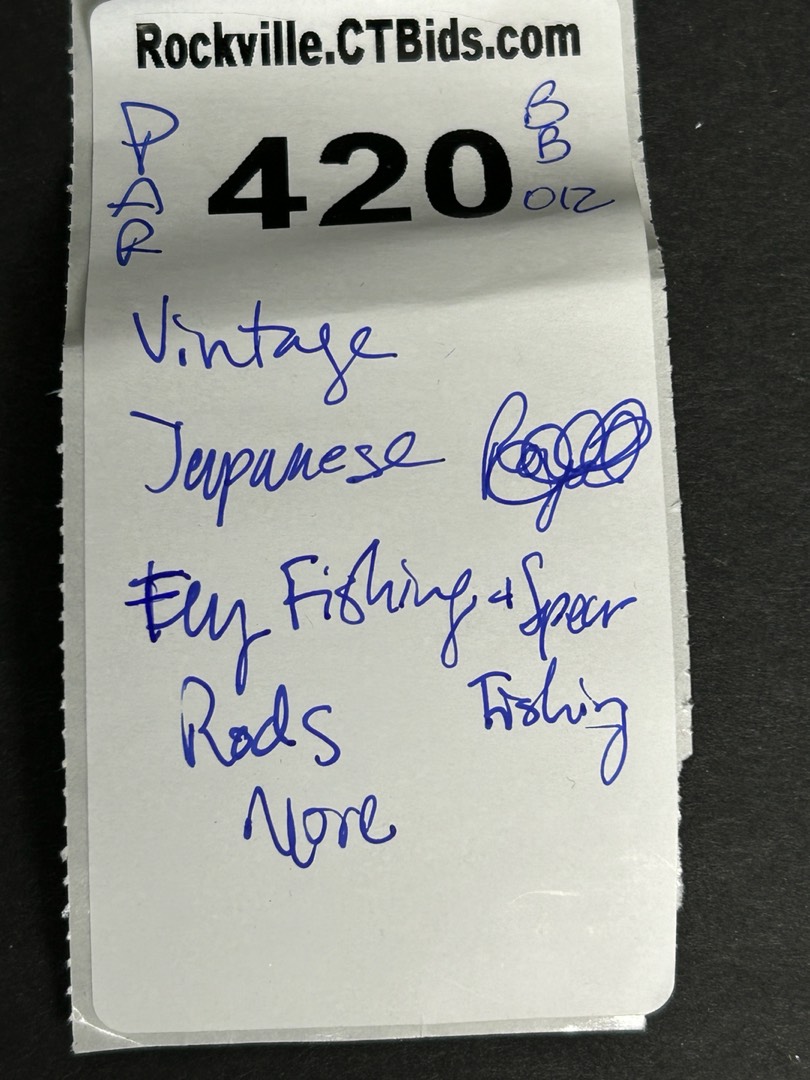 Rockville.CTBids.com
DYAR
420
BB
012
Vintage
Japanese
Fly Fishing + Spear
Rods Fishing
More